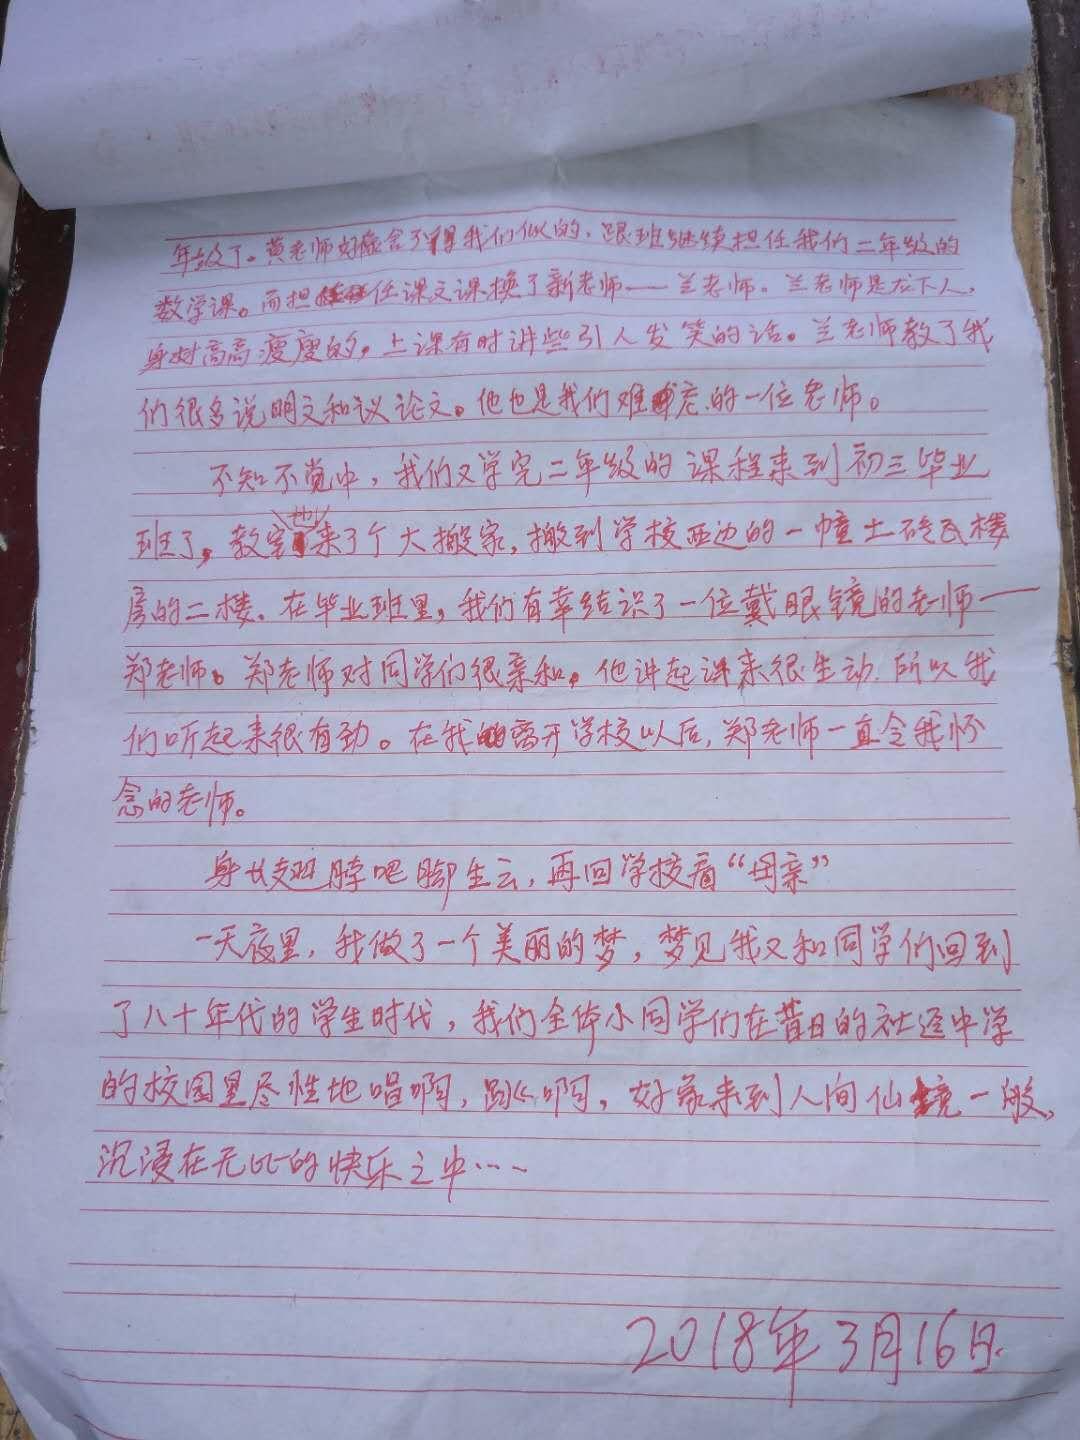 年级了。黄老师好像舍不得我们似的，跟班继续担任我们二年级的
数学课。而担任课文课换了新老师——兰老师。兰老师是龙下人，
身材高高瘦瘦的，上课有时讲些引人发笑的话。兰老师教了我
们很多说明文和议论文。他也是我们难忘的一位老师。
不知不觉中，我们又学完二年级的课程来到初三毕业
班了，教室也来了个大搬家，搬到学校西边的一幢土砖瓦楼
房的二楼。在毕业班里，我们有幸结识了一位戴眼镜的老师——
郑老师。郑老师对同学们很亲和。他讲起课来很生动，所以我
们听起来很有劲。在我离开学校以后，郑老师一直令我怀
念的老师。
身长翅膀吧脚生云，再回学校看“母亲”
一天夜里，我做了一个美丽的梦，梦见我又和同学们回到
了八十年代的学生时代，我们全体小同学们在昔日的社迳中学
的校园里尽性地唱啊，跳啊，好象来到人间仙境一般，
沉浸在无比的快乐之中……
2018年3月16日.